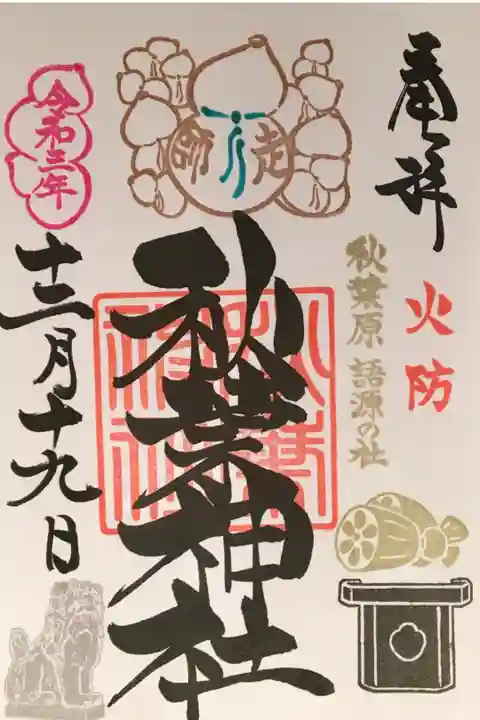 奉拝
火防
秋葉原 語源の社
走師
秋葉神社
令和三年
十二月十九日